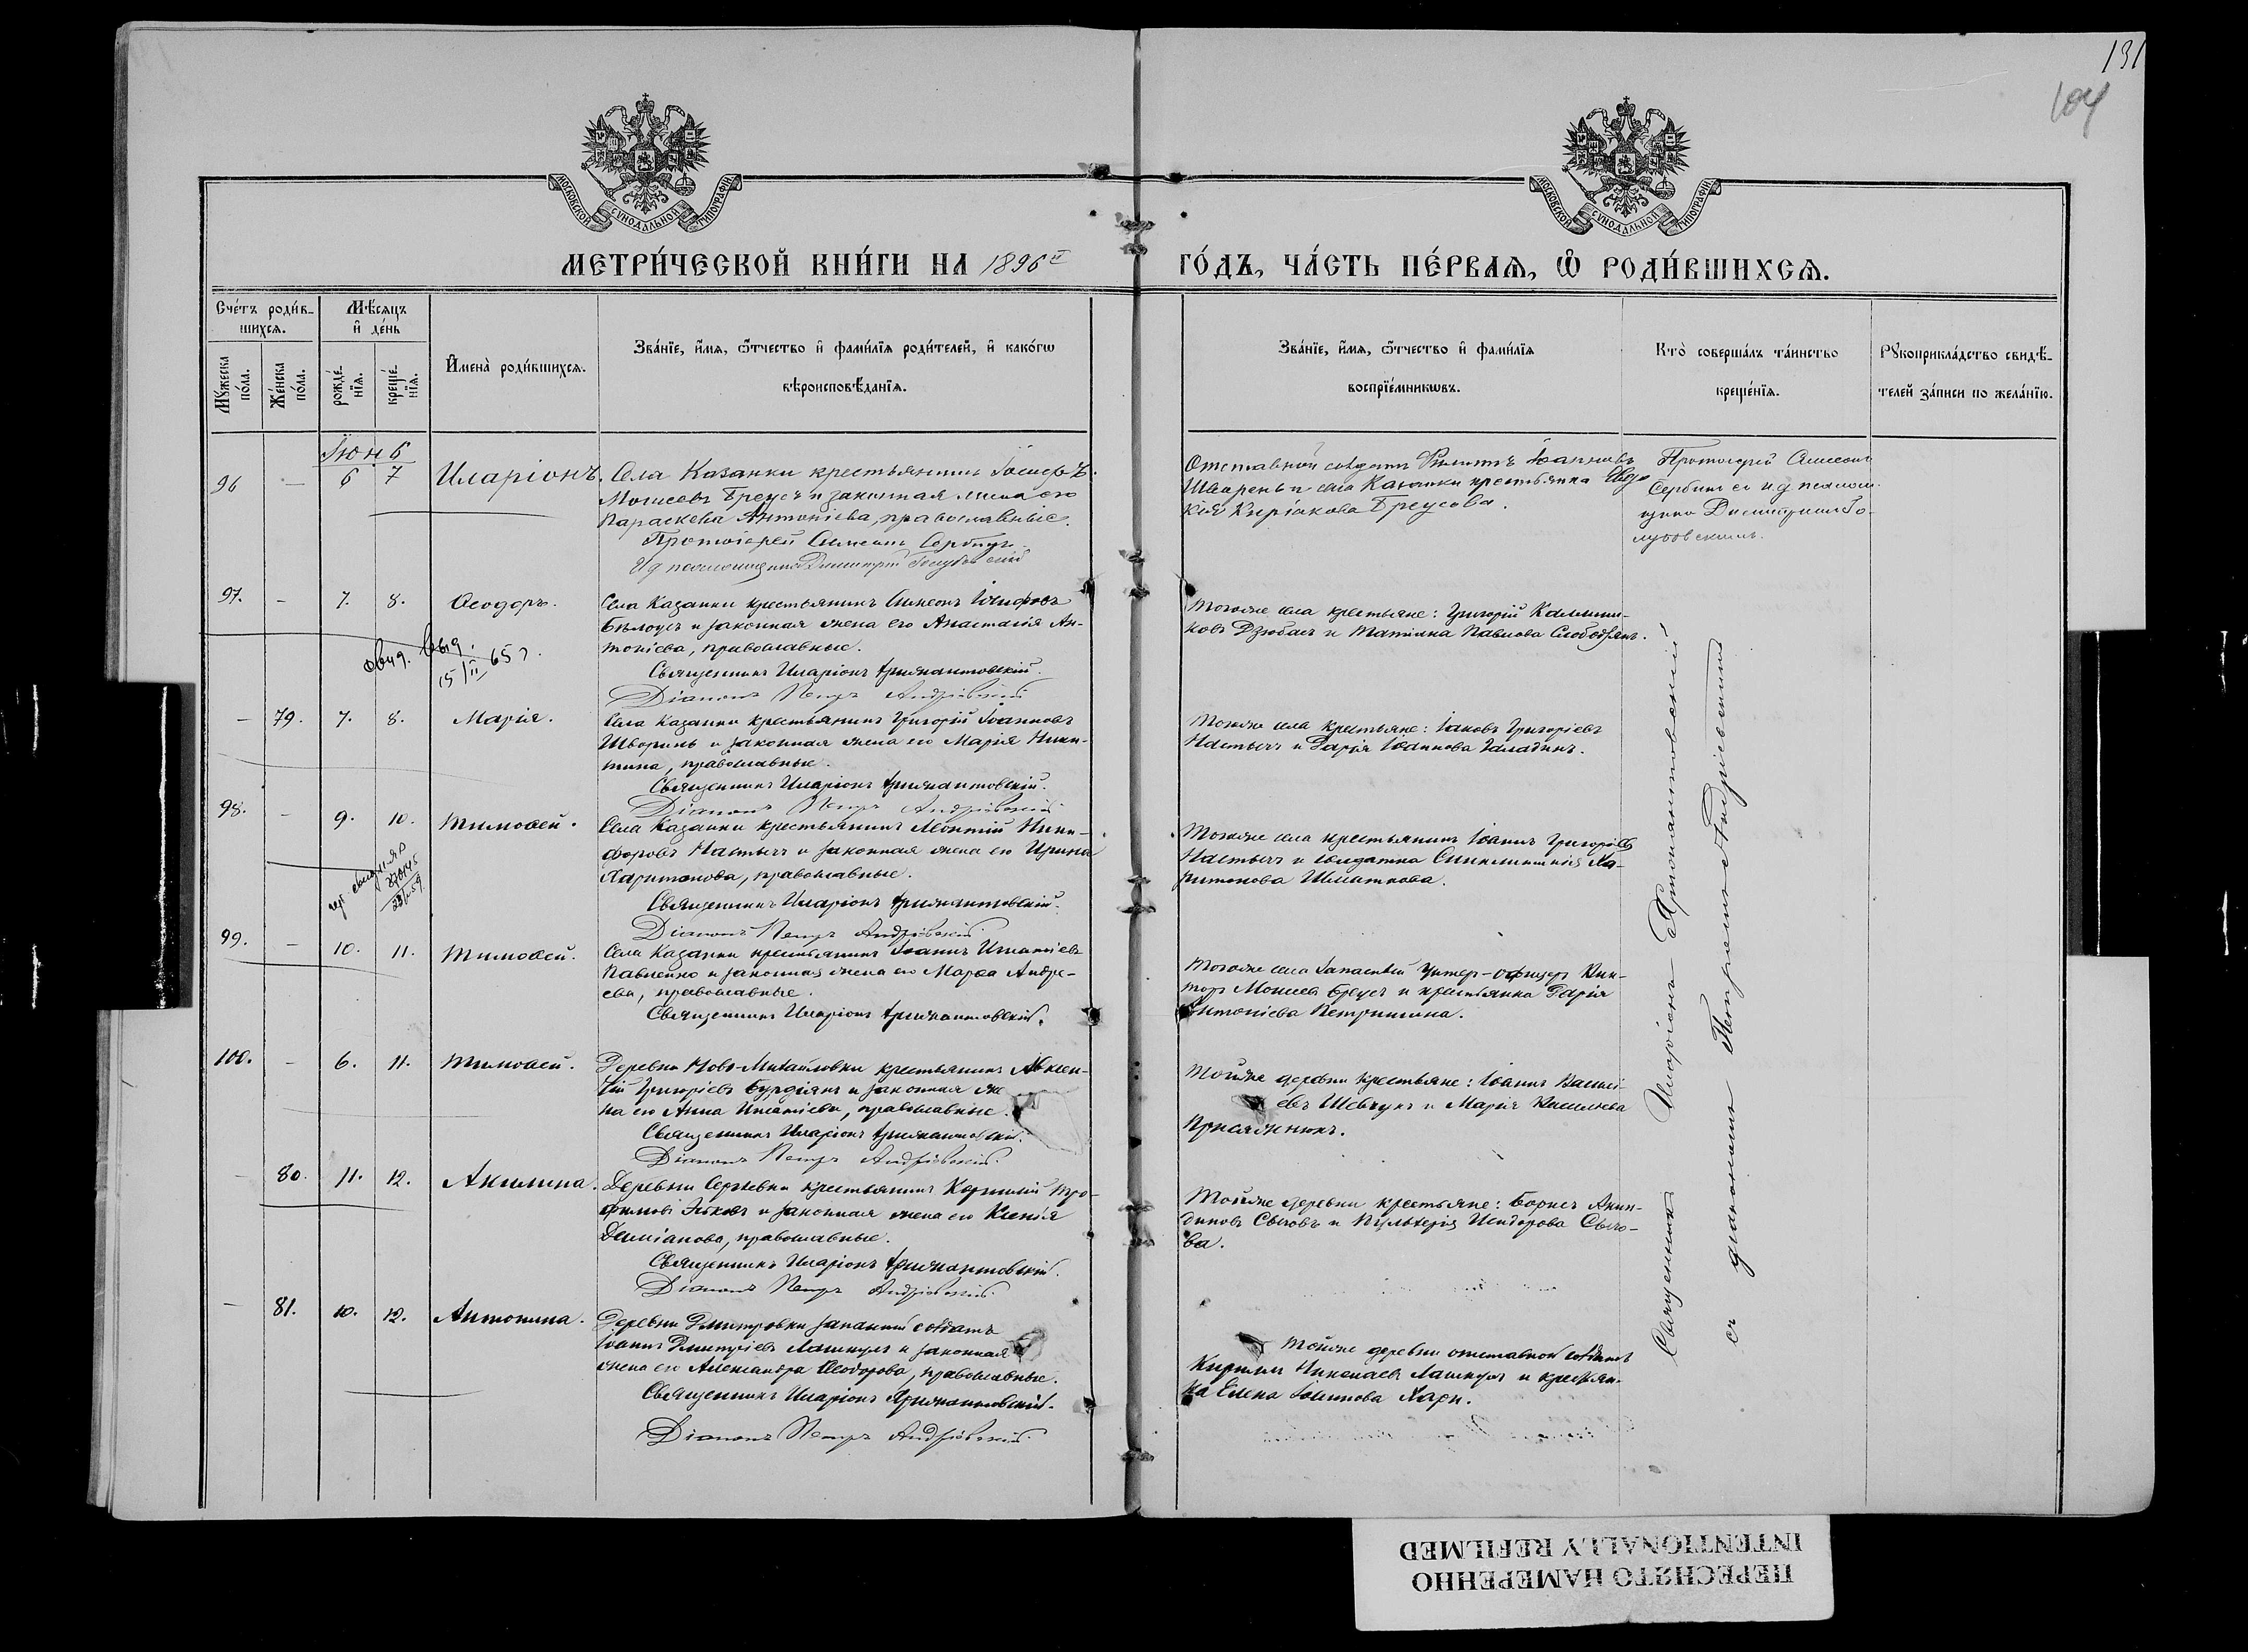 131
104
МОСКОВСКОЙ СѴНОДАЛЬНОЙ ТИПОГРАФІИ
МОСКОВСКОЙ СѴНОДАЛЬНОЙ ТИПОГРАФІИ
МЕТРИ́ЧЕСКОЙ КНИ́ГИ НА 1896й ГО́ДЪ, ЧА́СТЬ ПЕ́РВАѦ, Ѡ РОДИ́ВШИХСѦ.
Сче́тъ роди́в-
шихсѧ.
Мѣ́сѧцъ
и҆ де́нь
Мꙋ́жеска
по́ла.
Же́нска
по́ла.
рожде́-
нїѧ.
креще́-
нїѧ.
И҆мена̀ роди́вшихсѧ.
Зва́нїе, и҆́мѧ, ѻ҆́тчество и҆ фами́лїѧ роди́телей, и҆ како́гѡ
вѣроисповѣ́данїѧ.
Зва́нїе, и҆́мѧ, ѻ҆́тчество и҆ фами́лїѧ
воспрїе́мникѡвъ.
Кто̀ соверша́лъ та́инство
креще́нїѧ.
Рꙋкоприкла́дство свидѣ́-
телей за́писи по жела́нїю.
96 — 6 7 Иларіонъ. Села Казанки крестьянинъ Іосифъ
Моисеевъ Бреусъ и законная жена его
Параскева Антоніева, православные.
Протоіерей Симеонъ Сербинъ
Димитрій Голубовскій
Отставной солдатъ Филиппъ Іоанновъ
Шварень и села Казанки крестьянка Евдо-
кія Киріакова Бреусова.
Протоіерей Симеонъ
Сербинъ съ и.д. псалом-
щика Димитріемъ Го-
лубовскимъ.
97. — 7. 8. Ѳеодоръ. Села Казанки крестьянинъ Симеонъ Іосифовъ
Бѣлоусъ и законная жена его Анастасія Ан-
тоніева, православные.
Священникъ Иларіонъ Крыжановскій.
Діаконъ Петръ Андріевскій.
Тогоже села крестьяне: Григорій Каллини-
ковъ Дзюбасъ и Татіана Павлова Слободянъ.
15/II 65 г.
— 79. 7. 8. Марія. Села Казанки крестьянинъ Григорій Іоанновъ
Шворинь и законная жена его Марія Ники-
тина, православные.
Священникъ Иларіонъ Крыжановскій.
Діаконъ Петръ Андріевскій.
Тогоже села крестьяне: Іаковъ Григоріевъ
Настычъ и Дарія Іоаннова Галадинъ.
98. — 9. 10. Тимоѳей. Села Казанки крестьянинъ Леонтій Ники-
форовъ Настычъ и законная жена его Ирина
Харитонова, православные.
Священникъ Иларіонъ Крыжановскій.
Діаконъ Петръ Андріевскій.
Тогоже села крестьянинъ Іоаннъ Григоріевъ
Настычъ и солдатка Синклитикія Ха-
ритонова Шматкова.
99. — 10. 11. Тимоѳей. Села Казанки крестьянинъ Іоаннъ Игнатіевъ
Павленко и законная жена его Марѳа Андре-
ева, православные.
Священникъ Иларіонъ Крыжановскій.
Тогоже села Запасный Унтер-офицеръ Вик-
торъ Моисеевъ Бреусъ и крестьянка Дарія
Антоніева Петришина.
100. — 6. 11. Тимоѳей. Деревни Ново-Михайловки крестьянинъ Авксен-
тій Григоріевъ Бурдіянъ и законная же-
на его Анна Игнатіева, православные.
Священникъ Иларіонъ Крыжановскій.
Діаконъ Петръ Андріевскій.
Тойже деревни крестьяне: Іоаннъ Васильевъ
Шевчукъ и Марія Василіева
Присяжнюкъ.
— 80. 11. 12. Акилина. Деревни Сергѣевки крестьянинъ Корнилій Тро-
фимовъ Зыковъ и законная жена его Ксенія
Даміанова, православные.
Священникъ Иларіонъ Крыжановскій.
Діаконъ Петръ Андріевскій.
Тойже деревни крестьяне: Борисъ Акин-
диновъ Сычовъ и Пульхерія Исидорова Сычо-
ва.
— 81. 10. 12. Антонина. Деревни Дмитровки запасный солдатъ
Іоаннъ Дмитріевъ Лашкулъ и законная
жена его Александра Ѳеодорова, православные.
Священникъ Иларіонъ Крыжановскій.
Діаконъ Петръ Андріевскій.
Тойже деревни отставной солдатъ
Кириллъ Николаевъ Лашкулъ и крестьян-
ка Елена Іоаннова Хари.
Священникъ Иларіонъ Крыжановскій
съ діакономъ Петромъ Андріевскимъ
ПЕРЕСНЯТО НАМЕРЕННО
INTENTIONALLY REFILMED